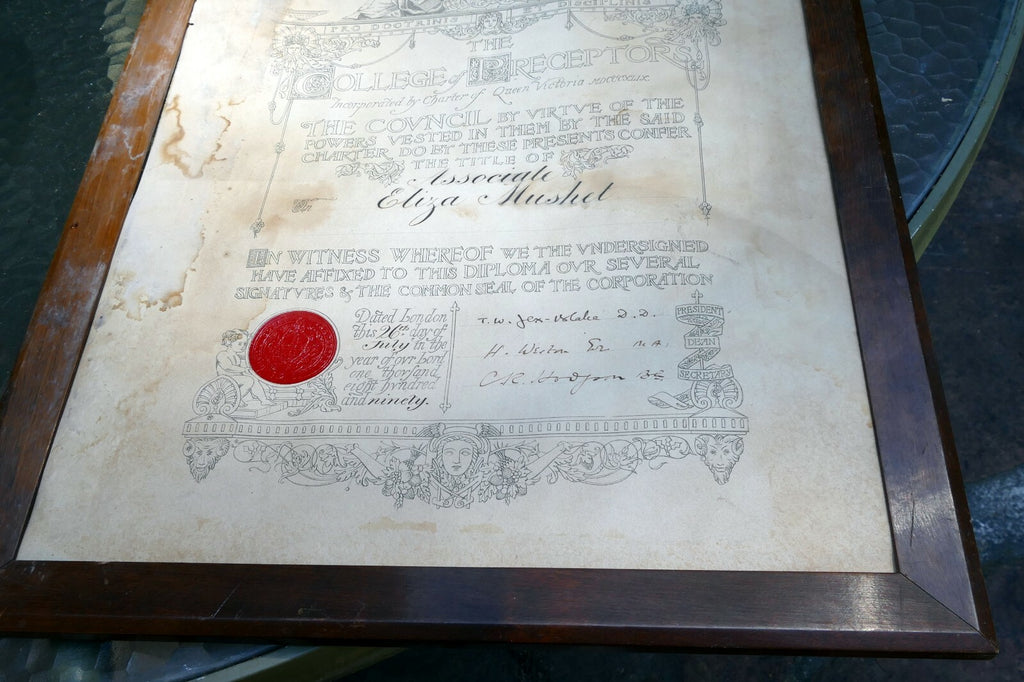 PRO DOCTRINIS DISCIPLINIS
THE
COLLEGE of PRECEPTORS
Incorporated by Charter of Queen Victoria MDCCCXLIX
THE COVNCIL BY VIRTVE OF THE
POWERS VESTED IN THEM BY THE SAID
CHARTER DO BY THESE PRESENTS CONFER
THE TITLE OF
Associate
On Eliza Mushet
IN WITNESS WHEREOF WE THE VNDERSIGNED
HAVE AFFIXED TO THIS DIPLOMA OVR SEVERAL
SIGNATVRES & THE COMMON SEAL OF THE CORPORATION
Dated London
this 26th day of
July in the
year of ovr Lord
one thovsand
eight hvndred
and ninety.
T. W. Jex-Blake D.D.
PRESIDENT
H. Weston M.A.
DEAN
C. R. Hodgson B.A.
SECRETARY